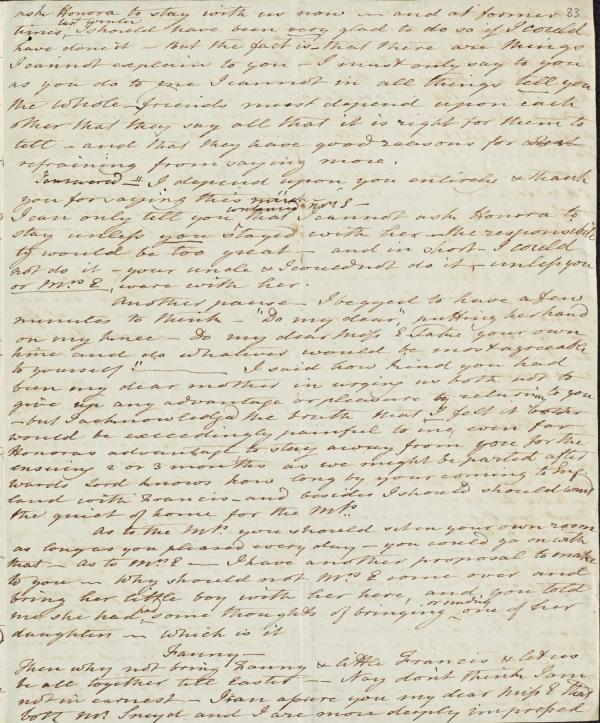 83
ask Honora to stay with us now — and at former
last winter
times, I should have been very glad to do so if I could
have done it — But the fact is — that there are things
I cannot explain to you — I must only say to you
as you do to me I cannot in all things tell you
the whole — friends must depend upon each
other that they say all that it is right for them to
tell — and that they have good reasons for
refraining from saying more.
I answered — "I depend upon you entirely & thank
you for saying this much"
continued Mrs S —
I can only tell you that I cannot ask Honora to
stay unless you stayed with her — the responsibili
ty would be too great — and in short — I could
not do it — your uncle & I could not do it — unless you
or Mrs E were with her.
Another pause — I begged to have a few
minutes to think — "Do my dear" putting her hand
on my knee — Do my dear Miss E take your own
time and do whatever would be most agreeable
to yourself" — I said how kind you had
been my dear mother in urging us both not to
give up any advantage or pleasure by returng to you
— but I acknowledged the truth that I felt it
would be exceedingly painful to me even for
Honoras advantage to stay away from you for the
ensuing 2 or 3 months as we might be parted after
wards Lord knows how long by your coming to Eng
land with Francis — and besides I should want
the quiet of home for the Ms.
As to the Ms. you should sit in your own room
as long as you pleased every day — you could go on with
that — As to Mrs E — I have another proposal to make
to you — Why should not Mrs E come over and
bring her little boy with her here, and you told
me she had had some thoughts of bringing or sending one of her
daughters — which is it
Fanny —
Then why not bring Fanny & little Francis & let us
be all together till Easter — Nay dont think I am
not in earnest — I can assure you my dear Miss E that
both Mr Sneyd and I are more deeply impressed